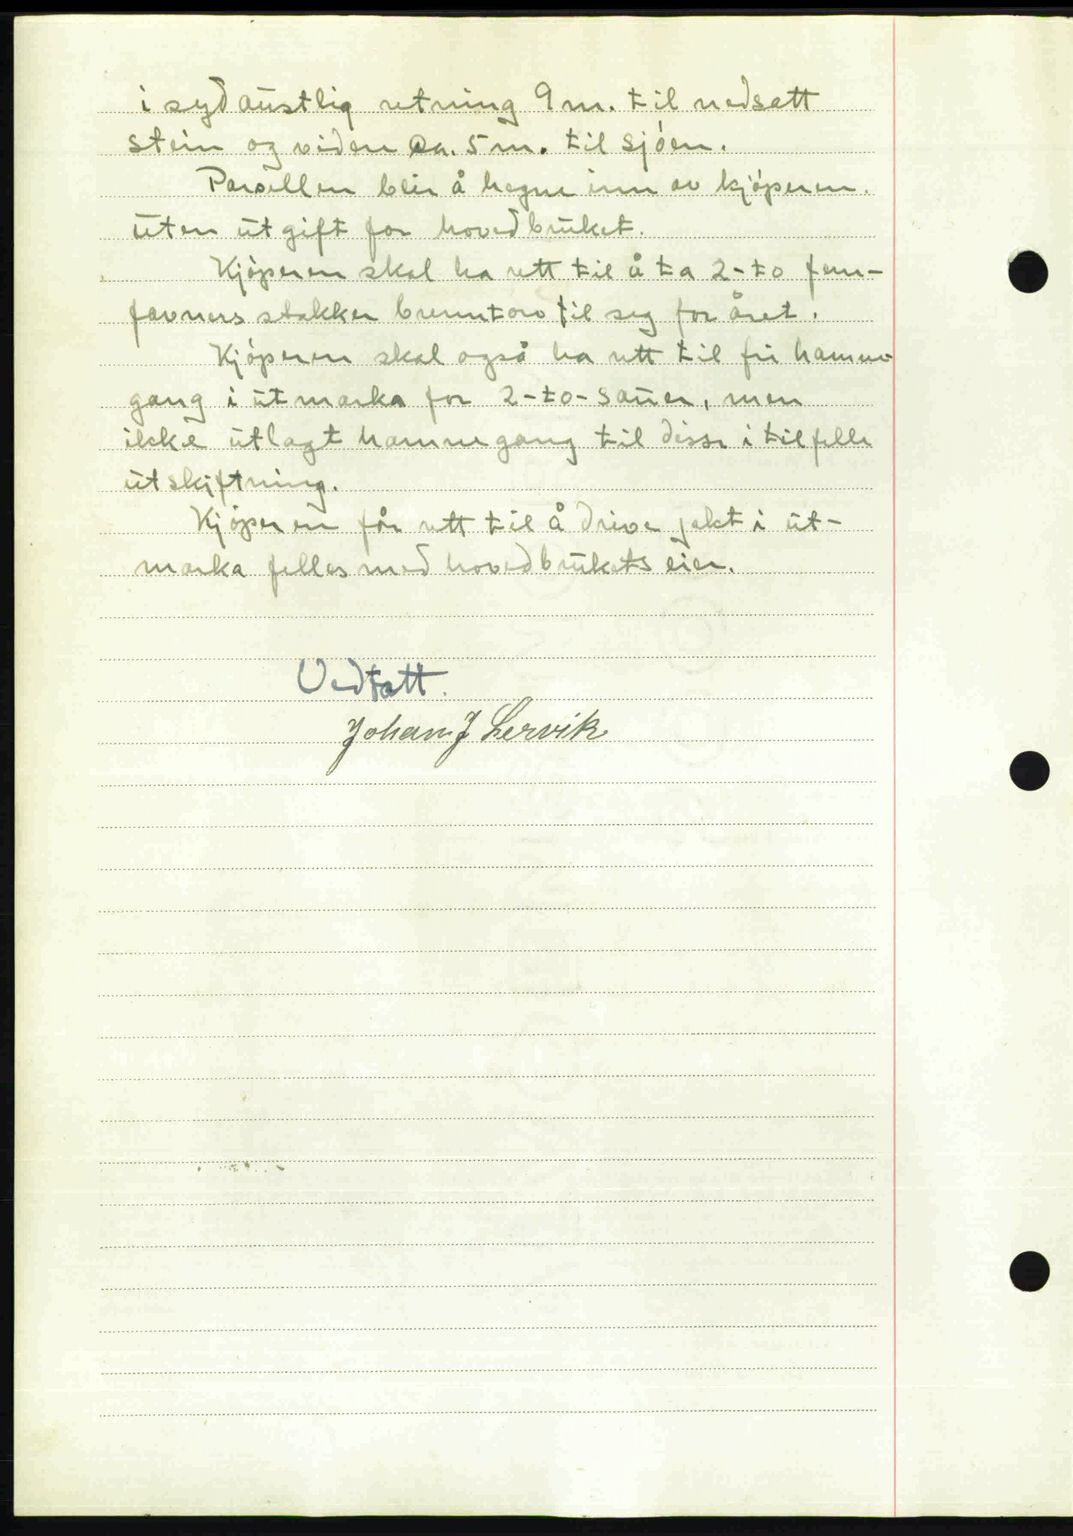 i sydaustlig retning 9 m. til nedsatt
stein og videre ca. 5 m. til sjøen.
Parsellen blir å hegne inn av kjøperen
uten utgift for hovedbruket.
Kjøperen skal ha rett til å ta 2-to fem-
favners stakker brenntorv til seg for året.
Kjøperen skal også ha rett til fri hamne-
gang i utmarka for 2-to-sauer, men
ikke utlagt hamnegang til disse i tilfelle
utskiftning.
Kjøperen får rett til å drive jakt i ut-
marka felles med hovedbrukets eier.
Vedtatt.
Johan J Lervik